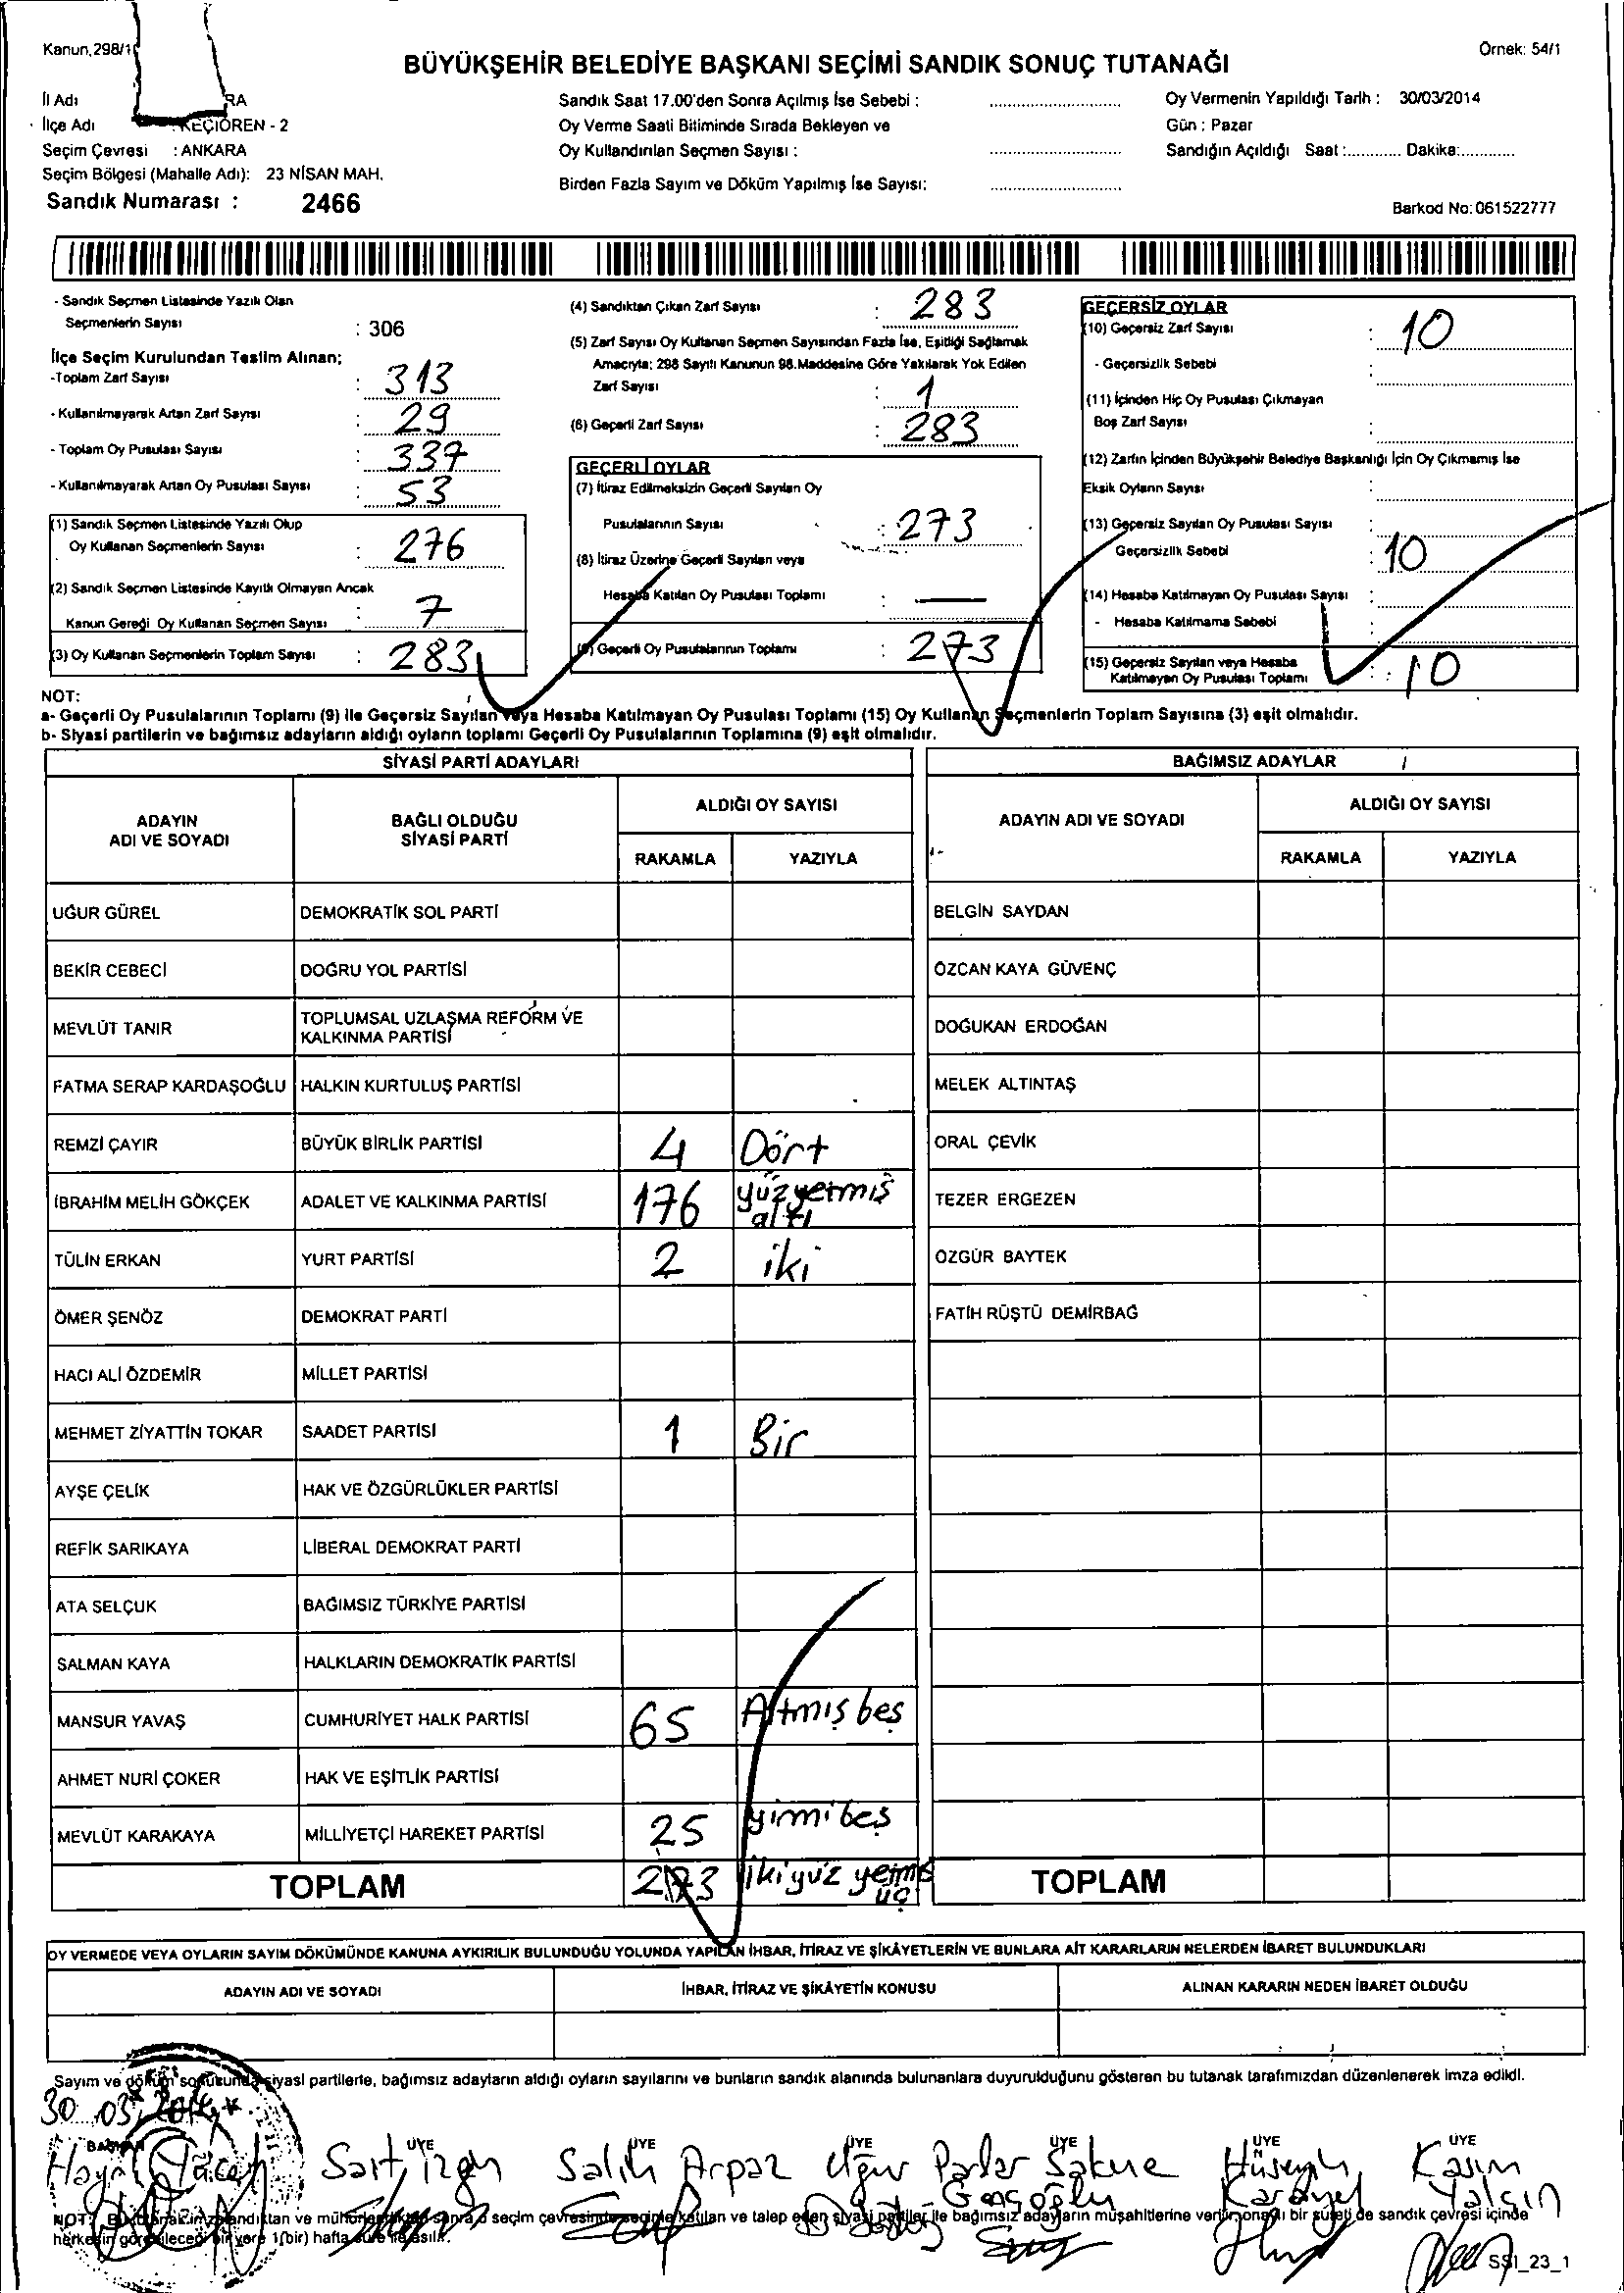 Kanun, 298/1
Örnek: 54/1
BÜYÜKŞEHİR BELEDİYE BAŞKANI SEÇİMİ SANDIK SONUÇ TUTANAĞI
İl Adı RA
İlçe Adı : KEÇİÖREN - 2
Seçim Çevresi : ANKARA
Seçim Bölgesi (Mahalle Adı): 23 NİSAN MAH.
Sandık Numarası : 2466
Sandık Saat 17.00'den Sonra Açılmış İse Sebebi :
Oy Verme Saati Bitiminde Sırada Bekleyen ve
Oy Kullandırılan Seçmen Sayısı :
Birden Fazla Sayım ve Döküm Yapılmış İse Sayısı:
Oy Vermenin Yapıldığı Tarih : 30/03/2014
Gün : Pazar
Sandığın Açıldığı Saat :............ Dakika:............
Barkod No: 061522777
- Sandık Seçmen Listesinde Yazılı Olan
Seçmenlerin Sayısı : 306
İlçe Seçim Kurulundan Teslim Alınan;
-Toplam Zarf Sayısı : 313
- Kullanılmayarak Artan Zarf Sayısı : 29
- Toplam Oy Pusulası Sayısı : 337
- Kullanılmayarak Artan Oy Pusulası Sayısı : 53
(1) Sandık Seçmen Listesinde Yazılı Olup
Oy Kullanan Seçmenlerin Sayısı : 276
(2) Sandık Seçmen Listesinde Kayıtlı Olmayan Ancak
Kanun Gereği Oy Kullanan Seçmen Sayısı : 7
(3) Oy Kullanan Seçmenlerin Toplam Sayısı : 283
(4) Sandıktan Çıkan Zarf Sayısı : 283
(5) Zarf Sayısı Oy Kullanan Seçmen Sayısından Fazla İse, Eşitliği Sağlamak
Amacıyla; 298 Sayılı Kanunun 98.Maddesine Göre Yakılarak Yok Edilen
Zarf Sayısı : 1
(6) Geçerli Zarf Sayısı : 283
GEÇERLİ OYLAR
(7) İtiraz Edilmeksizin Geçerli Sayılan Oy
Pusulalarının Sayısı : 273
(8) İtiraz Üzerine Geçerli Sayılan veya
Hesaba Katılan Oy Pusulası Toplamı : —
(9) Geçerli Oy Pusulalarının Toplamı : 273
GEÇERSİZ OYLAR
(10) Geçersiz Zarf Sayısı : 10
- Geçersizlik Sebebi :
(11) İçinden Hiç Oy Pusulası Çıkmayan
Boş Zarf Sayısı :
(12) Zarfın İçinden Büyükşehir Belediye Başkanlığı İçin Oy Çıkmamış İse
Eksik Oyların Sayısı :
(13) Geçersiz Sayılan Oy Pusulası Sayısı :
Geçersizlik Sebebi : 10
(14) Hesaba Katılmayan Oy Pusulası Sayısı :
- Hesaba Katılmama Sebebi :
(15) Geçersiz Sayılan veya Hesaba
Katılmayan Oy Pusulası Toplamı : 10
NOT:
a- Geçerli Oy Pusulalarının Toplamı (9) ile Geçersiz Sayılan veya Hesaba Katılmayan Oy Pusulası Toplamı (15) Oy Kullanan Seçmenlerin Toplam Sayısına (3) eşit olmalıdır.
b- Siyasi partilerin ve bağımsız adayların aldığı oyların toplamı Geçerli Oy Pusulalarının Toplamına (9) eşit olmalıdır.
SİYASİ PARTİ ADAYLARI
ADAYIN ADI VE SOYADI
BAĞLI OLDUĞU SİYASİ PARTİ
ALDIĞI OY SAYISI
RAKAMLA YAZIYLA
BAĞIMSIZ ADAYLAR
ADAYIN ADI VE SOYADI
ALDIĞI OY SAYISI
RAKAMLA YAZIYLA
UĞUR GÜREL DEMOKRATİK SOL PARTİ BELGİN SAYDAN
BEKİR CEBECİ DOĞRU YOL PARTİSİ ÖZCAN KAYA GÜVENÇ
MEVLÜT TANIR TOPLUMSAL UZLAŞMA REFORM VE KALKINMA PARTİSİ DOĞUKAN ERDOĞAN
FATMA SERAP KARDAŞOĞLU HALKIN KURTULUŞ PARTİSİ MELEK ALTINTAŞ
REMZİ ÇAYIR BÜYÜK BİRLİK PARTİSİ 4 Dört ORAL ÇEVİK
İBRAHİM MELİH GÖKÇEK ADALET VE KALKINMA PARTİSİ 176 yüzyetmiş altı TEZER ERGEZEN
TÜLİN ERKAN YURT PARTİSİ 2 iki ÖZGÜR BAYTEK
ÖMER ŞENÖZ DEMOKRAT PARTİ FATİH RÜŞTÜ DEMİRBAĞ
HACI ALİ ÖZDEMİR MİLLET PARTİSİ
MEHMET ZİYATTİN TOKAR SAADET PARTİSİ 1 Bir
AYŞE ÇELİK HAK VE ÖZGÜRLÜKLER PARTİSİ
REFİK SARIKAYA LİBERAL DEMOKRAT PARTİ
ATA SELÇUK BAĞIMSIZ TÜRKİYE PARTİSİ
SALMAN KAYA HALKLARIN DEMOKRATİK PARTİSİ
MANSUR YAVAŞ CUMHURİYET HALK PARTİSİ 65 Altmış beş
AHMET NURİ ÇOKER HAK VE EŞİTLİK PARTİSİ
MEVLÜT KARAKAYA MİLLİYETÇİ HAREKET PARTİSİ 25 yirmi beş
TOPLAM 273 ikiyüz yetmiş üç TOPLAM
OY VERMEDE VEYA OYLARIN SAYIM DÖKÜMÜNDE KANUNA AYKIRILIK BULUNDUĞU YOLUNDA YAPILAN İHBAR, İTİRAZ VE ŞİKÂYETLERİN VE BUNLARA AİT KARARLARIN NELERDEN İBARET BULUNDUKLARI
ADAYIN ADI VE SOYADI İHBAR, İTİRAZ VE ŞİKÂYETİN KONUSU ALINAN KARARIN NEDEN İBARET OLDUĞU
Sayım ve döküm sonucunda siyasi partilerle, bağımsız adayların aldığı oyların sayılarını ve bunların sandık alanında bulunanlara duyurulduğunu gösteren bu tutanak tarafımızdan düzenlenerek imza edildi.
30 03 2014
BAŞKAN ÜYE ÜYE ÜYE ÜYE ÜYE ÜYE
Salih Arpaz Uğur Sakine Hüseyin Kasım
Gençoğlu Yalçın
NOT: Bu tutanak imzalandıktan ve mühürlendikten sonra o seçim çevresinde seçime katılan ve talep eden siyasi partiler ile bağımsız adayların müşahitlerine verilir, onaylı bir sureti de sandık çevresi içinde
herkesin görebileceği bir yere 1(bir) hafta süre ile asılır.
SS1_23_1